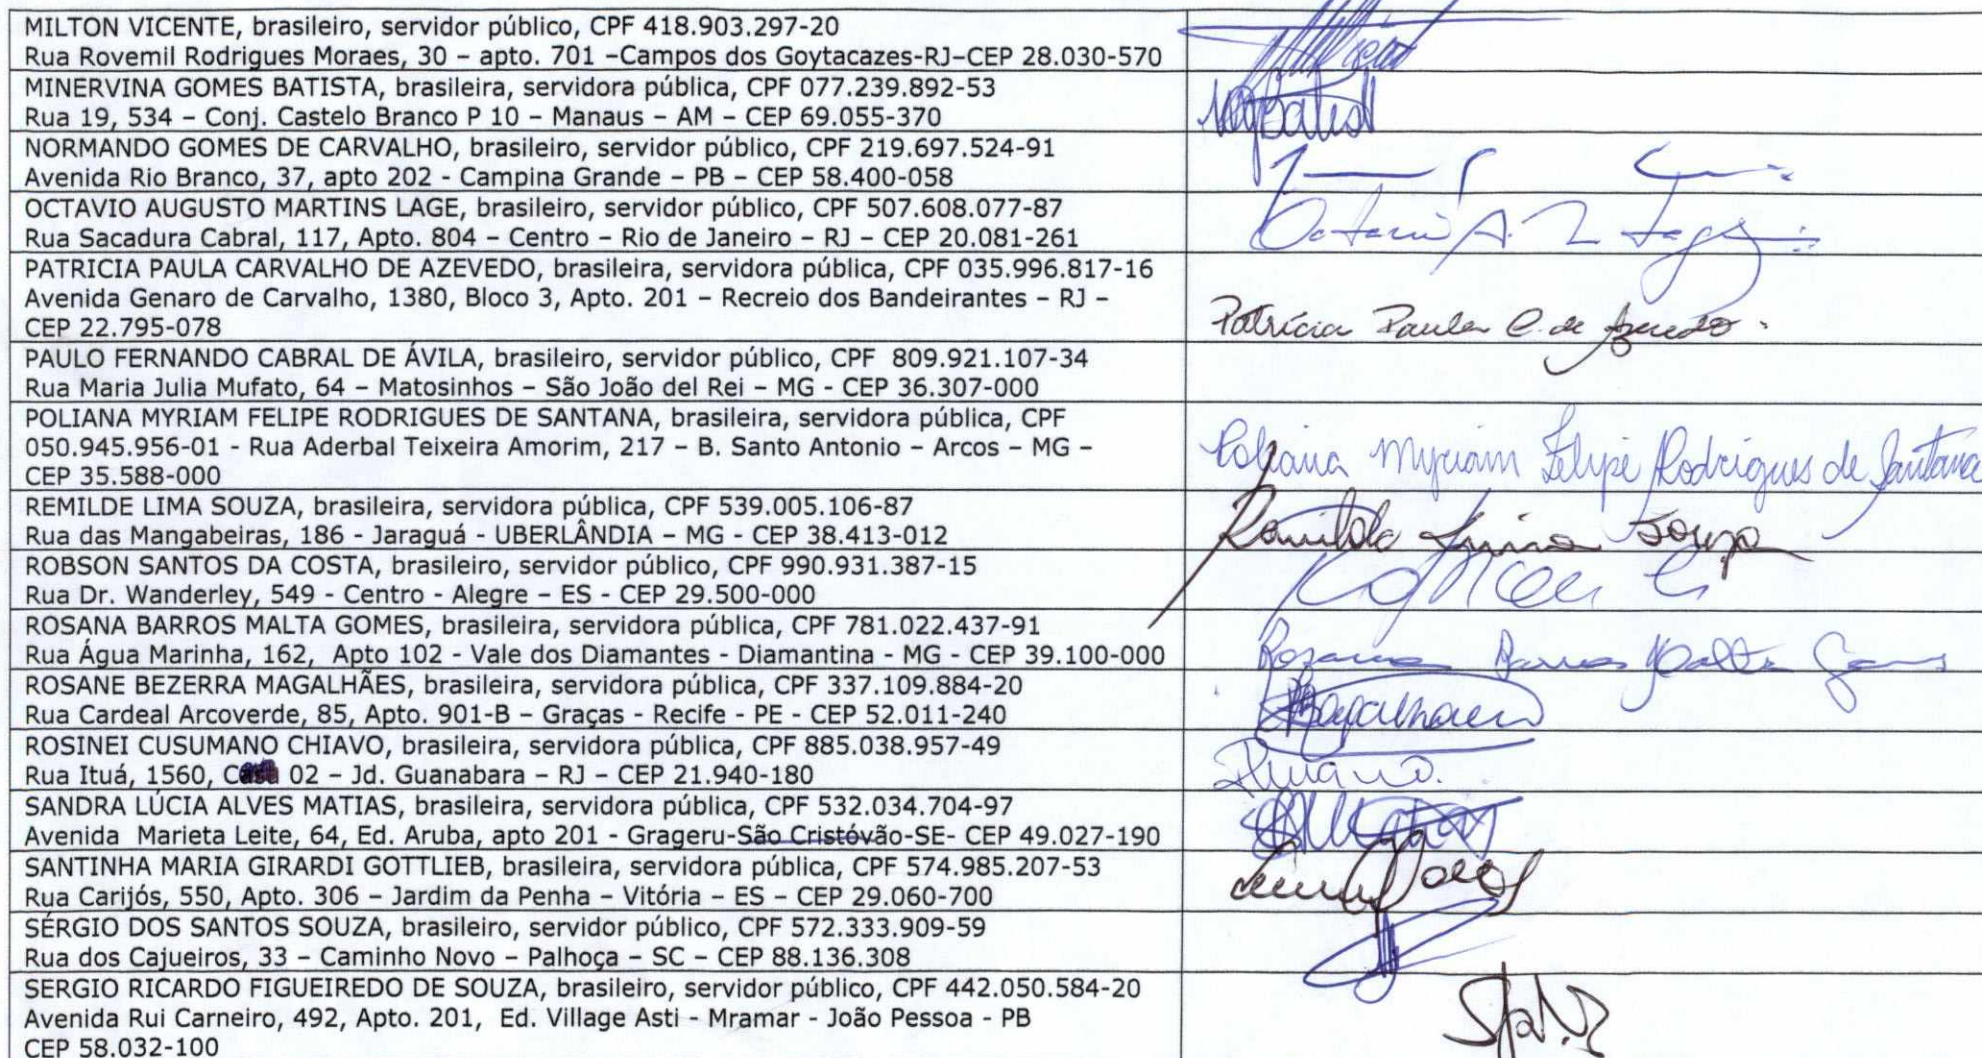 MILTON VICENTE, brasileiro, servidor público, CPF 418.903.297-20
Rua Rovemil Rodrigues Moraes, 30 – apto. 701 –Campos dos Goytacazes-RJ–CEP 28.030-570
MINERVINA GOMES BATISTA, brasileira, servidora pública, CPF 077.239.892-53
Rua 19, 534 – Conj. Castelo Branco P 10 – Manaus – AM – CEP 69.055-370
NORMANDO GOMES DE CARVALHO, brasileiro, servidor público, CPF 219.697.524-91
Avenida Rio Branco, 37, apto 202 - Campina Grande – PB – CEP 58.400-058
OCTAVIO AUGUSTO MARTINS LAGE, brasileiro, servidor público, CPF 507.608.077-87
Octavio A. M Lage
Rua Sacadura Cabral, 117, Apto. 804 – Centro – Rio de Janeiro – RJ – CEP 20.081-261
PATRICIA PAULA CARVALHO DE AZEVEDO, brasileira, servidora pública, CPF 035.996.817-16
Avenida Genaro de Carvalho, 1380, Bloco 3, Apto. 201 – Recreio dos Bandeirantes – RJ –
CEP 22.795-078
Patrícia Paula C. de Azevedo.
PAULO FERNANDO CABRAL DE ÁVILA, brasileiro, servidor público, CPF 809.921.107-34
Rua Maria Julia Mufato, 64 – Matosinhos – São João del Rei – MG - CEP 36.307-000
POLIANA MYRIAM FELIPE RODRIGUES DE SANTANA, brasileira, servidora pública, CPF
050.945.956-01 - Rua Aderbal Teixeira Amorim, 217 – B. Santo Antonio – Arcos – MG –
CEP 35.588-000
Poliana Myriam Felipe Rodrigues de Santana
REMILDE LIMA SOUZA, brasileira, servidora pública, CPF 539.005.106-87
Rua das Mangabeiras, 186 - Jaraguá - UBERLÂNDIA – MG - CEP 38.413-012
Remilde Lima Souza
ROBSON SANTOS DA COSTA, brasileiro, servidor público, CPF 990.931.387-15
Rua Dr. Wanderley, 549 - Centro - Alegre – ES - CEP 29.500-000
ROSANA BARROS MALTA GOMES, brasileira, servidora pública, CPF 781.022.437-91
Rua Água Marinha, 162, Apto 102 - Vale dos Diamantes - Diamantina - MG - CEP 39.100-000
Rosana Barros Malta Gomes
ROSANE BEZERRA MAGALHÃES, brasileira, servidora pública, CPF 337.109.884-20
Rua Cardeal Arcoverde, 85, Apto. 901-B – Graças - Recife - PE - CEP 52.011-240
ROSINEI CUSUMANO CHIAVO, brasileira, servidora pública, CPF 885.038.957-49
Rua Ituá, 1560, Casa 02 – Jd. Guanabara – RJ – CEP 21.940-180
SANDRA LÚCIA ALVES MATIAS, brasileira, servidora pública, CPF 532.034.704-97
Avenida Marieta Leite, 64, Ed. Aruba, apto 201 - Grageru-São Cristóvão-SE- CEP 49.027-190
SANTINHA MARIA GIRARDI GOTTLIEB, brasileira, servidora pública, CPF 574.985.207-53
Rua Carijós, 550, Apto. 306 – Jardim da Penha – Vitória – ES – CEP 29.060-700
SÉRGIO DOS SANTOS SOUZA, brasileiro, servidor público, CPF 572.333.909-59
Rua dos Cajueiros, 33 – Caminho Novo – Palhoça – SC – CEP 88.136.308
SERGIO RICARDO FIGUEIREDO DE SOUZA, brasileiro, servidor público, CPF 442.050.584-20
Avenida Rui Carneiro, 492, Apto. 201, Ed. Village Asti - Mramar - João Pessoa - PB
CEP 58.032-100